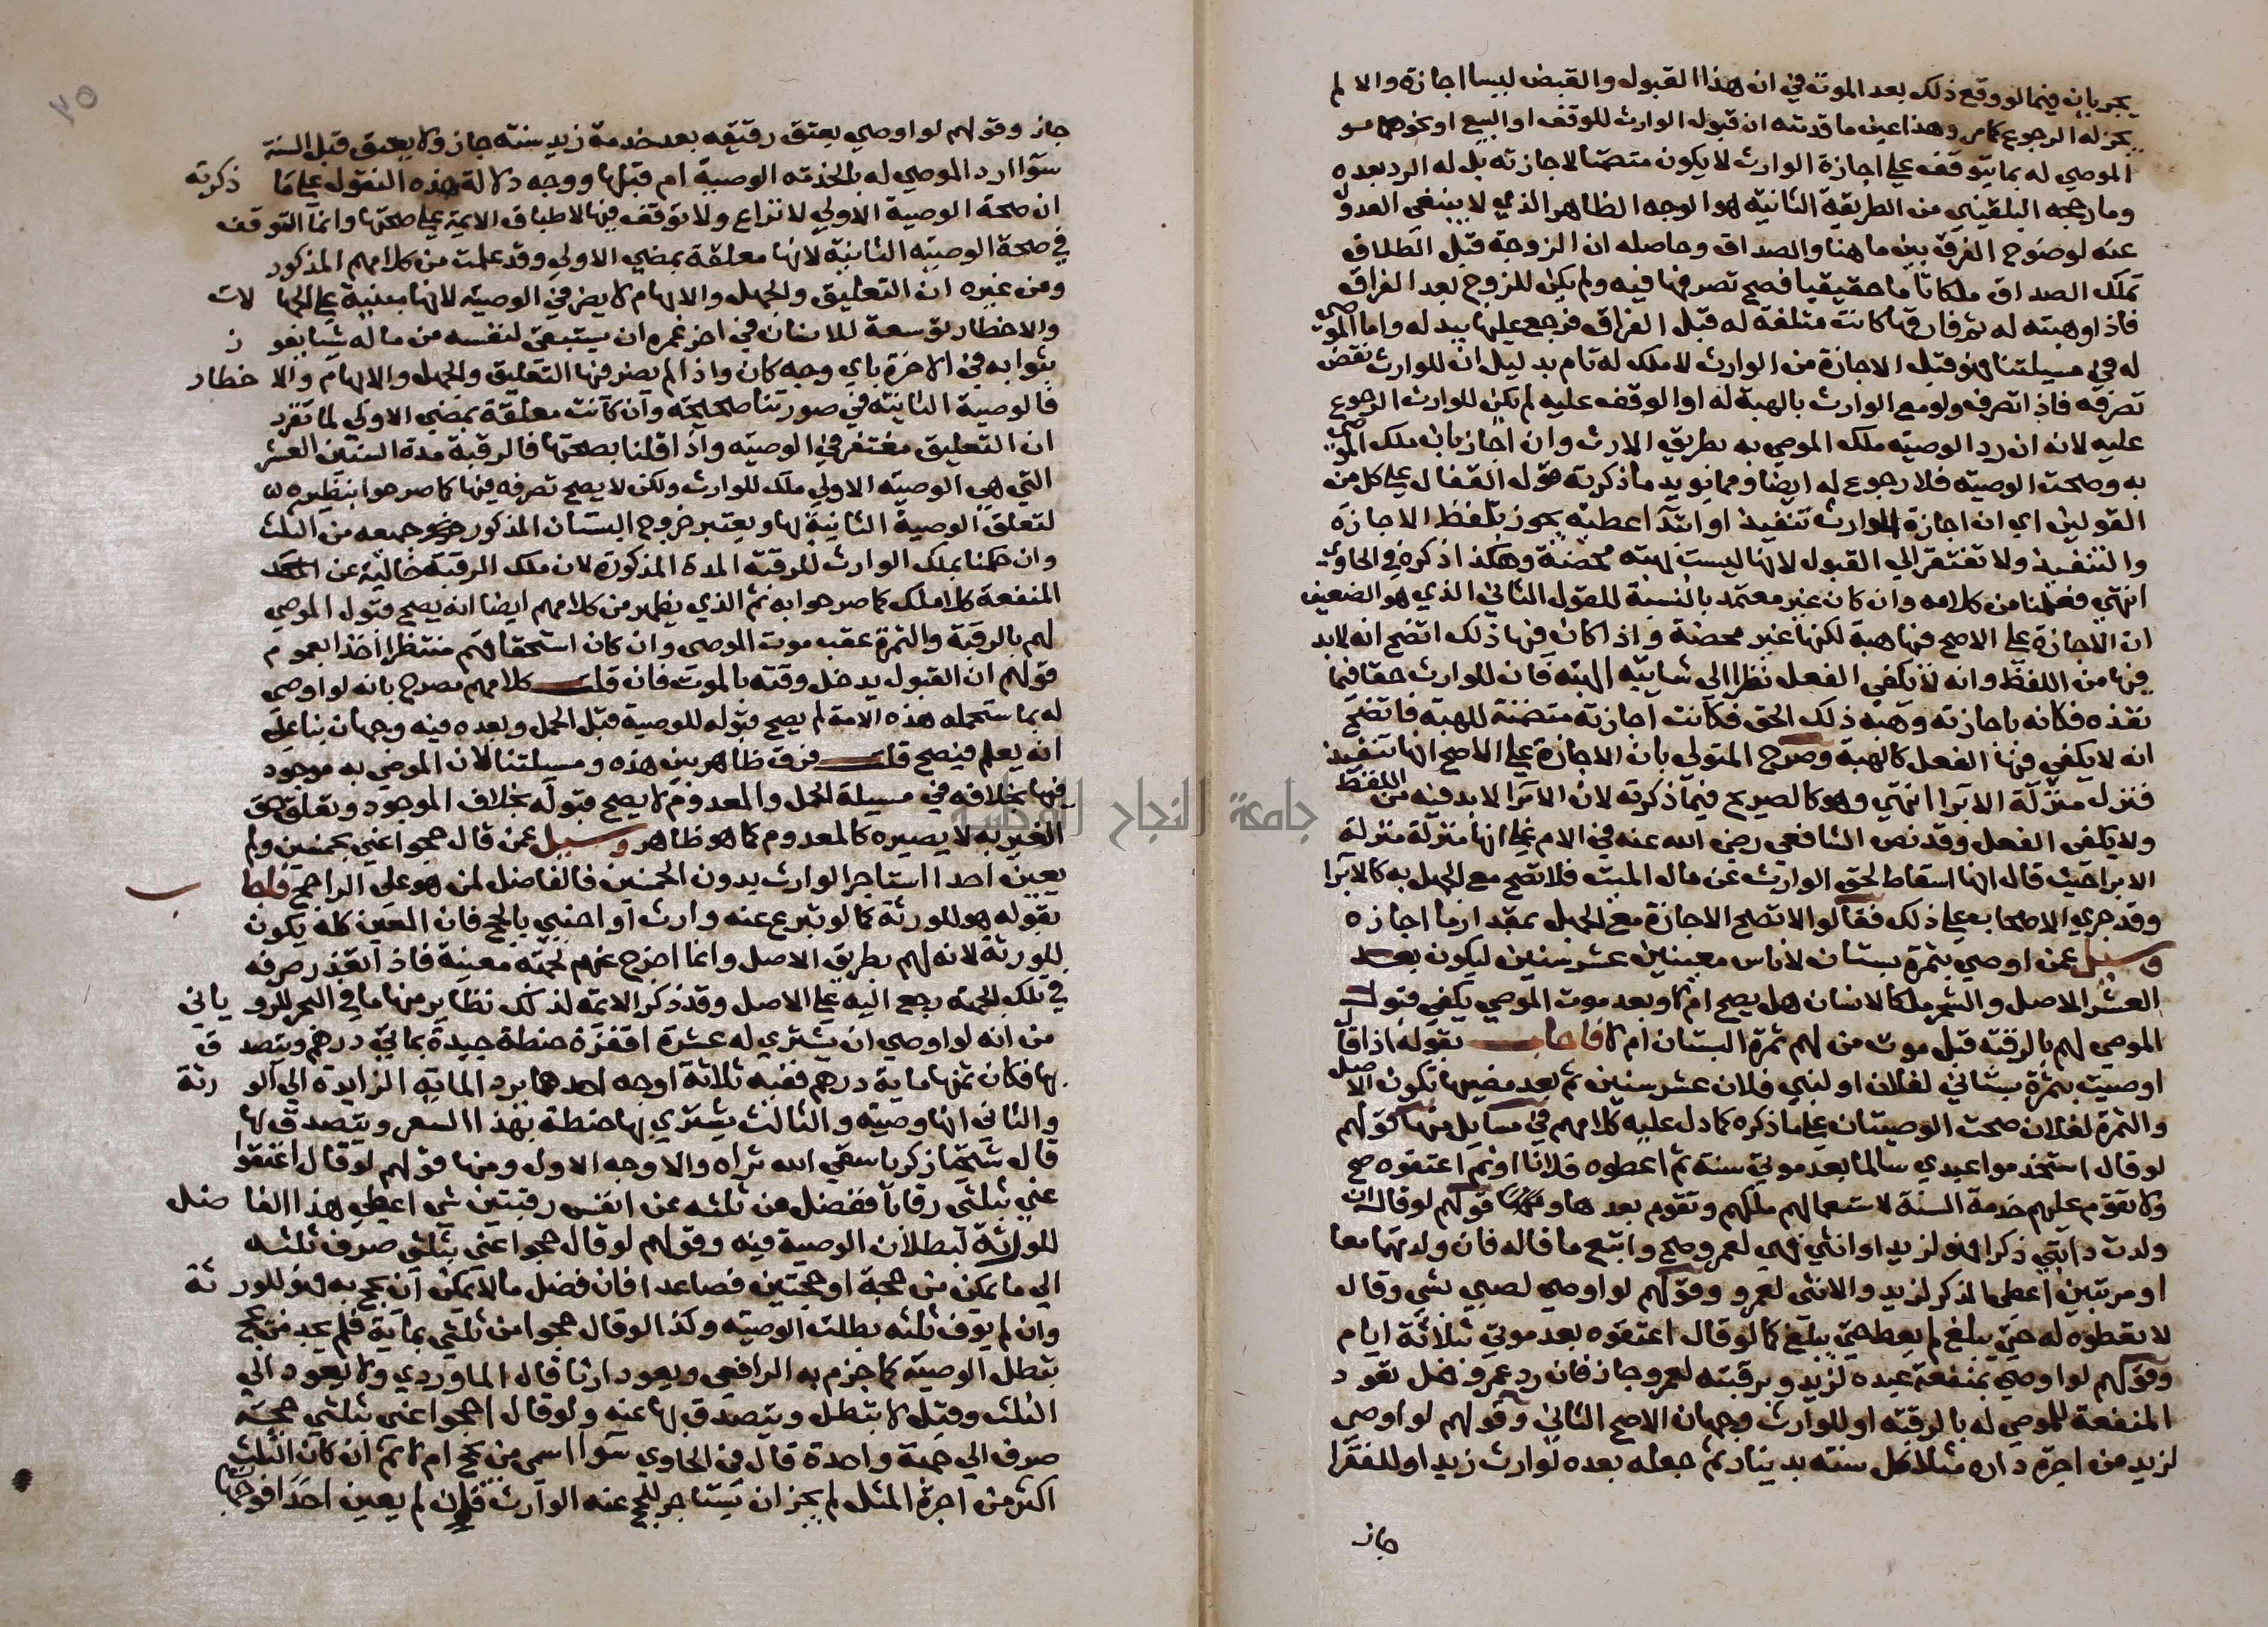 يجريان فيما لو وقع ذلك بعد الموت في ان هذا القبول والقبض ليسا اجازة والا لم
يجز له الرجوع كما مر وهذا عين ما قدمته ان قبول الوارث للوقف او البيع او نحوهما
الموصي له بما يتوقف علي اجازة الوارث لا يكون متضمنا لاجازته بل له الرد بعده
وما رجحه البلقيني من الطريقة الثانية هو الوجه الظاهر الذي لا ينبغي العدول
عنه لوضوح الفرق بين ما هنا والصداق وحاصله ان الزوجة قبل الطلاق
تملك الصداق ملكا تاما حقيقيا فصح تصرفها فيه ولم يكن للزوج بعد الفراق
فاذا وهبته له ثم فارقها كانت متلفة له قبل الفراق فرجع عليها ببدله واما الموصي
له في مسيلتنا فهو قبل الاجازة من الوارث لا ملك له تام بدليل ان للوارث نقض
تصرفه فاذا تصرف ولو مع الوارث بالهبة له او الوقف عليه لم يكن للوارث الرجوع
عليه لانه ان رد الوصيه ملك الموصي به بطريق الارث وان اجاز بان ملك الموصي
به وصحت الوصيه فلا رجوع له ايضا ومما يويد ما ذكرته قول القفال علي كل من
القولين اي ان اجازة الوارث تنفيذ او ابتدآ اعطيه يجوز بلفظ الاجازه
والتنفيذ ولا تفتقر الي القبول لانها ليست بهبه محضة وهكذا ذكره في الحاوي
انتهي فعلمنا من كلامه وان كان غير معتمد بالنسبة للقول الثاني الذي هو الضعيف
ان الاجازة علي الاصح فيها هبة لكنها غير محضة واذا كان فيها ذلك اتضح انه لابد
فيها من اللفظ وانه لا يكفي الفعل نظرا الي شايبة الهبه فان للوارث حقا فيما
نفذه فكانه باجازته وهبه ذلك الحق فكانت اجازته متضمنة للهبة فاتضح
انه لا يكفي فيها الفعل كالهبة وصرح المتولي بان الاجازة علي الاصح انها تنفيذ
فتنزل منزلة الابرا انتهي وهو كالصريح فيما ذكرته لان الابرا لابد فيه من اللفظ
ولا يكفي الفعل وقد نص الشافعي رضي الله عنه في الام علي انها منزلة منزلة
الابرا حيث قال انها اسقاط لحق الوارث عن مال الميت فلا تصح مع الجهل به كالابرا
وقد جري الاصحاب علي ذلك فقالوا لا تصح الاجازة مع الجهل بمقدار ما اجازه
وسيل عمن اوصي بثمرة بستان لاناس معينين عشر سنين ليكون بعد
العشر الاصل والثمر ملكا لانسان هل يصح ام لا وبعد موت الموصي يكفي قبول
الموصي لهم بالرقبه قبل موت من لهم ثمرة البستان ام لا فاجاب بقوله اذا قال
اوصيت بثمرة بستاني لفلان او لبني فلان عشر سنين ثم بعد مضيها تكون الاصل
والثمرة لفلان صحت الوصيتان علي ما ذكره كما دل عليه كلامهم في مسايل منها قولهم
لو قال استخدموا عبدي سالما بعد موتي سنة ثم اعطوه فلانا او ثم اعتقوه صح
ولا تقوم عليهم خدمة السنة لاستعمالهم ملكهم وتقوم بعدها ومنها قولهم لو قال ان
ولدت دابتي ذكرا فهو لزيد او انثي فهي لعمرو صح واتبع ما قاله فان ولدتهما معا
او مرتبين اعطي الذكر لزيد والانثي لعمرو وقولهم لو اوصي لصبي بشي وقال
لا تعطوه له حتي يبلغ لم يعط حتي يبلغ كما لو قال اعتقوه بعد موتي بثلاثة ايام
وقولهم لو اوصي بمنفعة عبده لزيد وبرقبته لعمرو جاز فان رد عمرو هل تعود
المنفعة للموصي له بالرقبه او للوارث وجهان الاصح الثاني وقولهم لو اوصي
لزيد من اجرة داره مثلا كل سنة بدينار ثم جعله بعده لوارث زيد او للفقرا
جاز
جاز وقولهم لو اوصي بعتق رقيقه بعد خدمة زيد سنة جاز ولا يعتق قبل السنة
سوآ ارد الموصي له بالخدمه الوصية ام قبلها ووجه دلالة هذه النقول علي ما ذكرته
ان صحة الوصية الاولي لا نزاع ولا توقف فيها لاطباق الايمة علي صحتها وانما التوقف
في صحة الوصيه الثانية لانها معلقة بمضي الاولي وقد علمت من كلامهم المذكور
ومن غيره ان التعليق والجهل والابهام لا يضر في الوصيه لانها مبنية علي الجهالات
والاخطار توسعة للانسان في اخر عمره ان يستبقي لنفسه من ماله شيا يفوز
بثوابه في الاخرة باي وجه كان واذا لم يضر فيها التعليق والجهل والابهام والاخطار
فالوصية الثانيه في صورتنا صحيحة وان كانت معلقة بمضي الاولي لما تقرر
ان التعليق مغتفر في الوصيه واذا قلنا بصحتها فالرقبة مدة السنين العشر
التي هي الوصية الاولي ملك للوارث ولكن لا يصح تصرفه فيها كما صرحوا بنظيره
لتعلق الوصية الثانية بها ويعتبر خروج البستان المذكور جميعه من الثلث
وان حكمنا بملك الوارث للرقبة المدة المذكورة لان ملك الرقبة خالية عن
المنفعة كلا ملك كما صرحوا به ثم الذي يظهر من كلامهم ايضا انه يصح قبول الموصي
لهم بالرقبة والثمرة عقب موت الموصي وان كان استحقاقهم منتظرا اخذا بعموم
قولهم ان القبول يدخل وقته بالموت فان قلت كلامهم مصرح بانه لو اوصي
له بما ستحمله هذه الامة لم يصح قبوله للوصية قبل الحمل وبعده فيه وجهان بنا علي
انه يعلم فيصح قلت فرق ظاهر بين هذه ومسيلتنا لان الموصي به موجود
فيها بخلافه في مسيلة الحمل والمعدوم لا يصح قبوله بخلاف الموجود وتعلق حق
الغير به لا يصيره كالمعدوم كما هو ظاهر وسيل عمن قال حجوا عني بخمسين ولم
يعين احدا استاجر الوارث بدون الخمسين فالفاضل لمن هو علي الراجح فاجاب
بقوله هو للورثة كما لو تبرع عنه وارث او اجنبي بالحج فان المعين كله يكون
للورثة لانه لهم بطريق الاصل وانما اخرج عنهم لجهة معينة فاذا تعذر صرفه
في تلك الجهة رجع اليه علي الاصل وقد ذكر الايمة لذلك نظاير منها ما في البحر للروياني
من انه لو اوصي ان يشتري له عشرة اقفزة حنطة جيدة بمايتي درهم ويتصدق
بها فكان ثمنها ماية درهم ففيه ثلاثة اوجه احدها يرد الماية الزايدة الي الورثة
والثاني انها وصيه والثالث يشتري بها حنطة بهذا السعر ويتصدق بها
قال شيخنا زكريا سقي الله ثراه والاوجه الاول ومنها قولهم لو قال اعتقوا
عني بثلثي رقابا ففضل من ثلثه عن انفس رقبتين شي اعطي هذا الفاضل
للورثة لبطلان الوصية فيه وقولهم لو قال حجوا عني بثلثي صرف ثلثه
الي ما يمكن من حجة او حجتين فصاعدا فان فضل ما لا يمكن ان يحج به فهو للورثة
وان لم يوف ثلثه بطلت الوصيه وكذا لو قال حجوا من ثلثي بماية فلم يجد من يحج
بتطل الوصية كما جزم به الرافعي ويعود ارثا قال الماوردي ولا يعود الي
الثلث وقيل لا بتطل ويتصدق بها عنه ولو قال احجوا عني بثلثي حجة
صرف الي حجة واحدة قال في الحاوي سوآ اسمي من يحج ام لا ثم ان كان الثلث
اكثر من اجرة المثل لم يجز ان يستاجر للحج عنه الوارث فان لم يعين احدا فوجهان